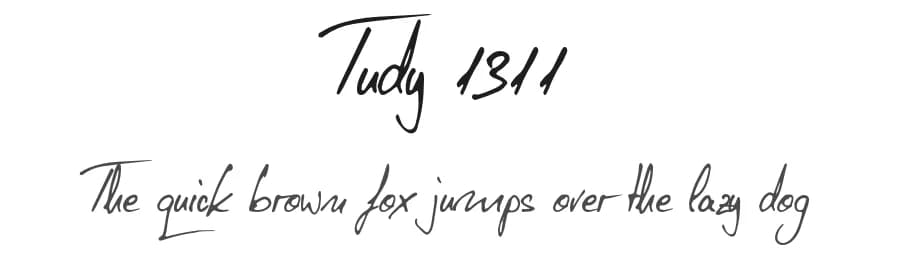 Tudy 1311
The quick brown fox jumps over the lazy dog